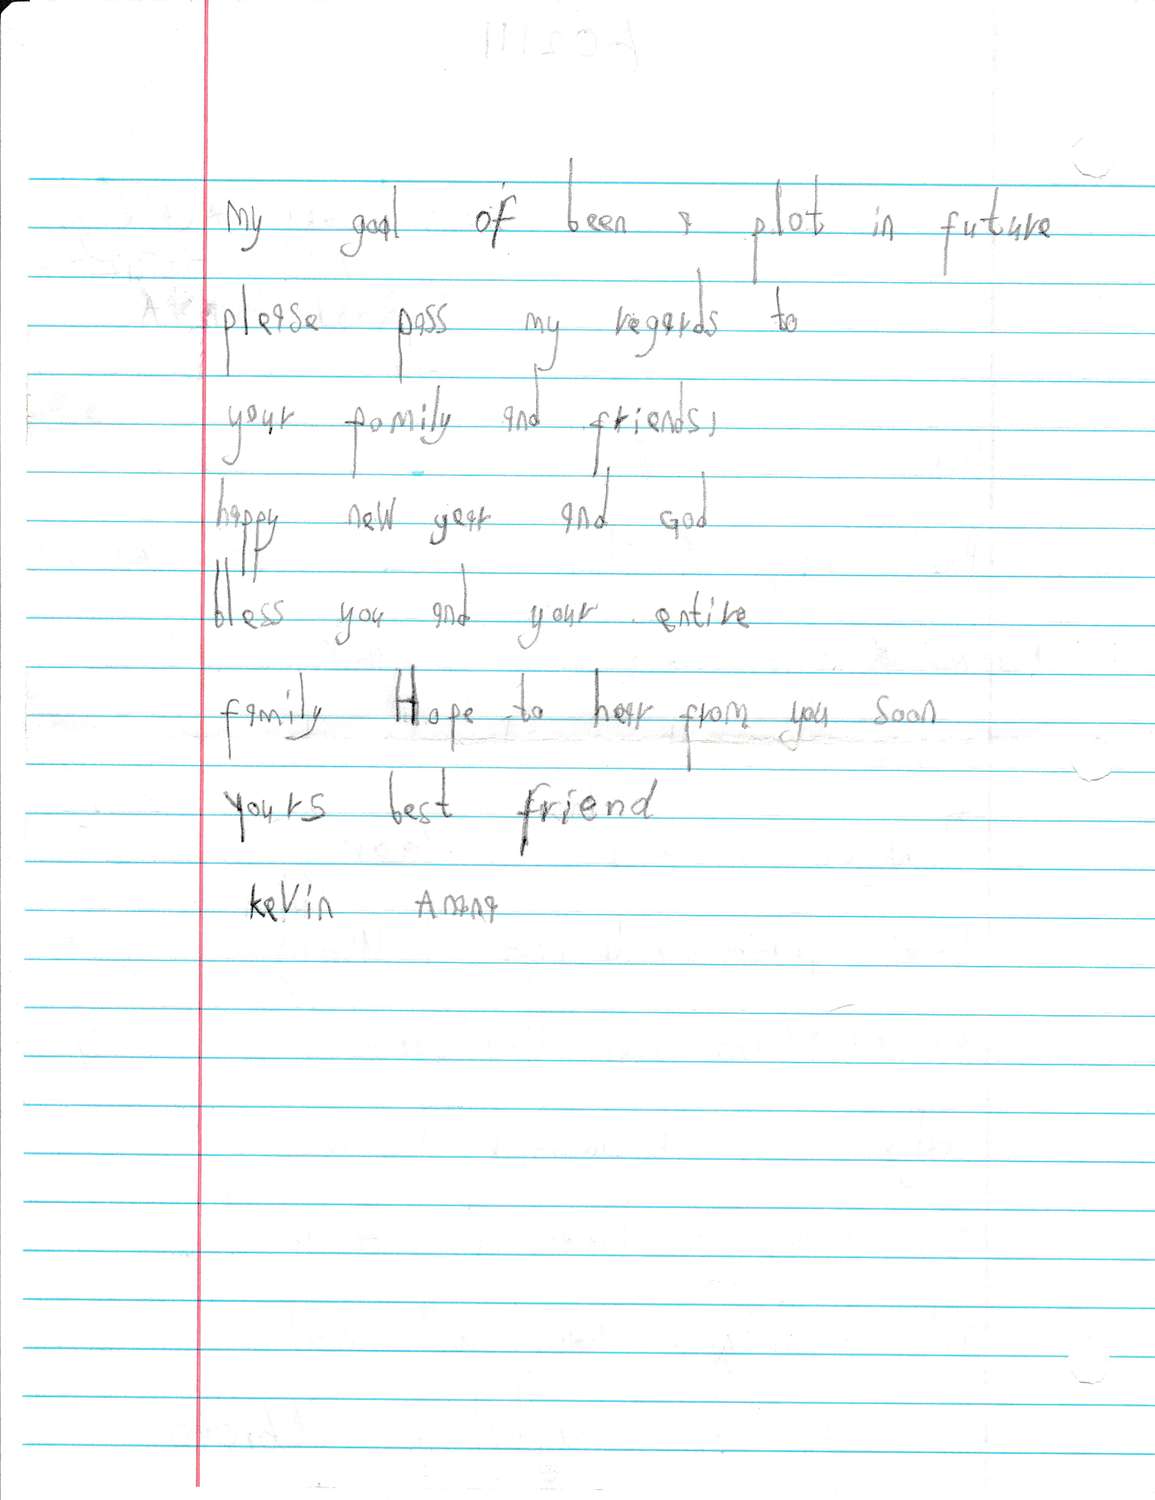 My goal of been a plot in future
please pass my regards to
your family and friends,
happy new year and God
bless you and your entire
family Hope to hear from you soon
yours best friend
kevin